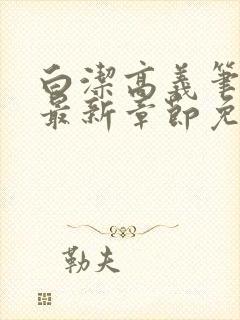 白潔高義筆
最新章節免
勒夫